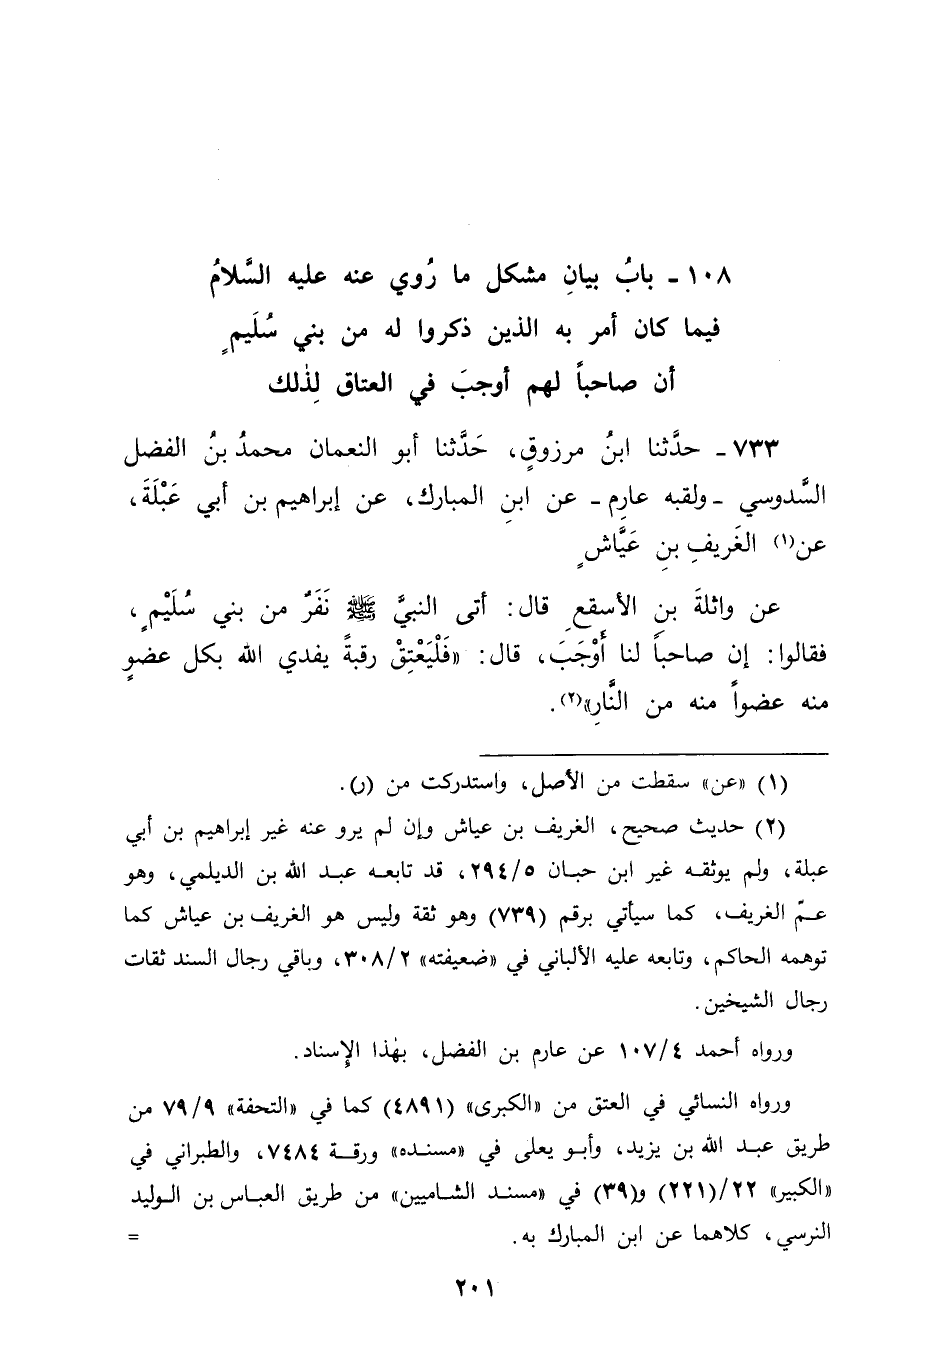 ١٠٨ - بابُ بيانِ مشكل ما رُوي عنه عليه السَّلامُ
فيما كان أمر به الذين ذكروا له من بني سُلَيمٍ
أن صاحباً لهم أوجبَ في العتاق لِذٰلك
٧٣٣ - حدَّثنا ابنُ مرزوقٍ، حَدَّثنا أبو النعمان محمدُ بنُ الفضل
السَّدوسي - ولقبه عارِم - عن ابنِ المبارك، عن إبراهيم بن أبي عَبْلَةَ،
عن(١) الغَريفِ بنِ عَيَّاشٍ
عن واثلةَ بنِ الأسقعِ قال: أتى النبيَّ ﷺ نَفَرٌ من بني سُلَيْمٍ،
فقالوا: إن صاحباً لنا أَوْجَبَ، قال: «فَلْيَعْتِقْ رقبةً يفدي الله بكل عضوٍ
منه عضواً منه من النَّارِ»(٢).
(١) «عن» سقطت من الأصل، واستدركت من (ر).
(٢) حديث صحيح، الغريف بن عياش وإن لم يرو عنه غير إبراهيم بن أبي
عبلة، ولم يوثقه غير ابن حبان ٢٩٤/٥، قد تابعه عبد الله بن الديلمي، وهو
عمّ الغريف، كما سيأتي برقم (٧٣٩) وهو ثقة وليس هو الغريف بن عياش كما
توهمه الحاكم، وتابعه عليه الألباني في «ضعيفته» ٣٠٨/٢، وباقي رجال السند ثقات
رجال الشيخين.
ورواه أحمد ١٠٧/٤ عن عارم بن الفضل، بهٰذا الإسناد.
ورواه النسائي في العتق من «الكبرى» (٤٨٩١) كما في «التحفة» ٧٩/٩ من
طريق عبد الله بن يزيد، وأبو يعلى في «مسنده» ورقة ٧٤٨٤، والطبراني في
«الكبير» ٢٢/(٢٢١) و(٣٩) في «مسند الشاميين» من طريق العباس بن الوليد
النرسي، كلاهما عن ابن المبارك به. =
٢٠١